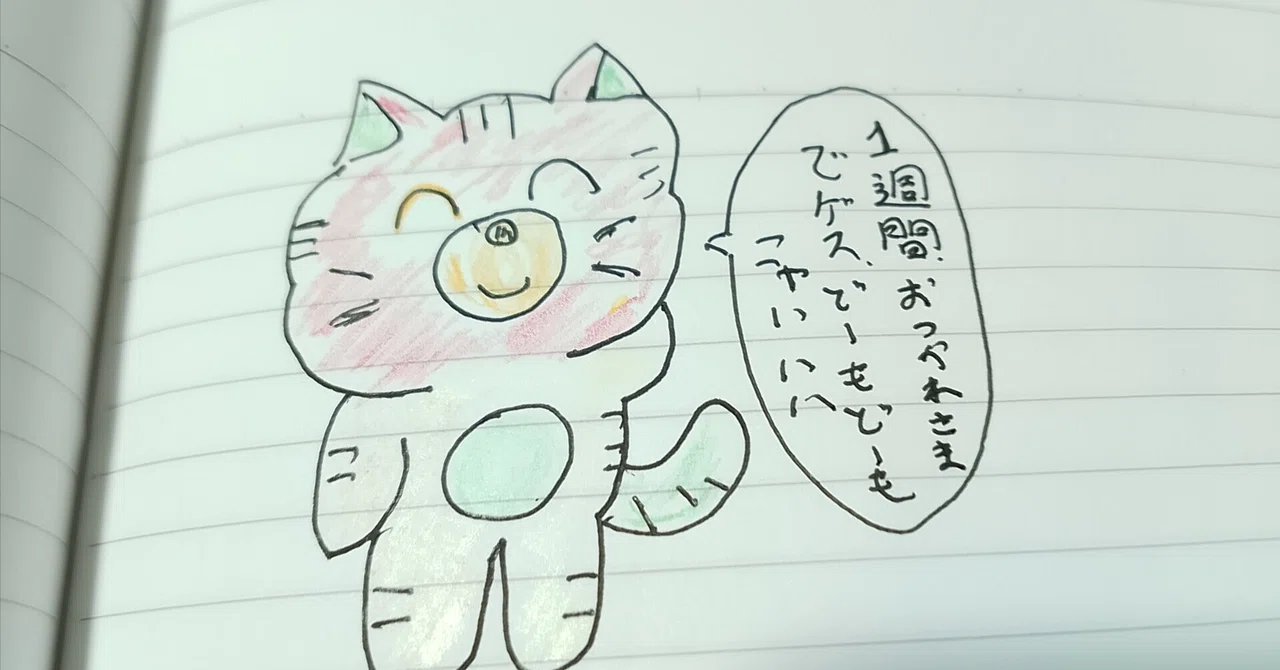 1週間、おつかれさま
でゲス、どーもどーも
ニャハハハ